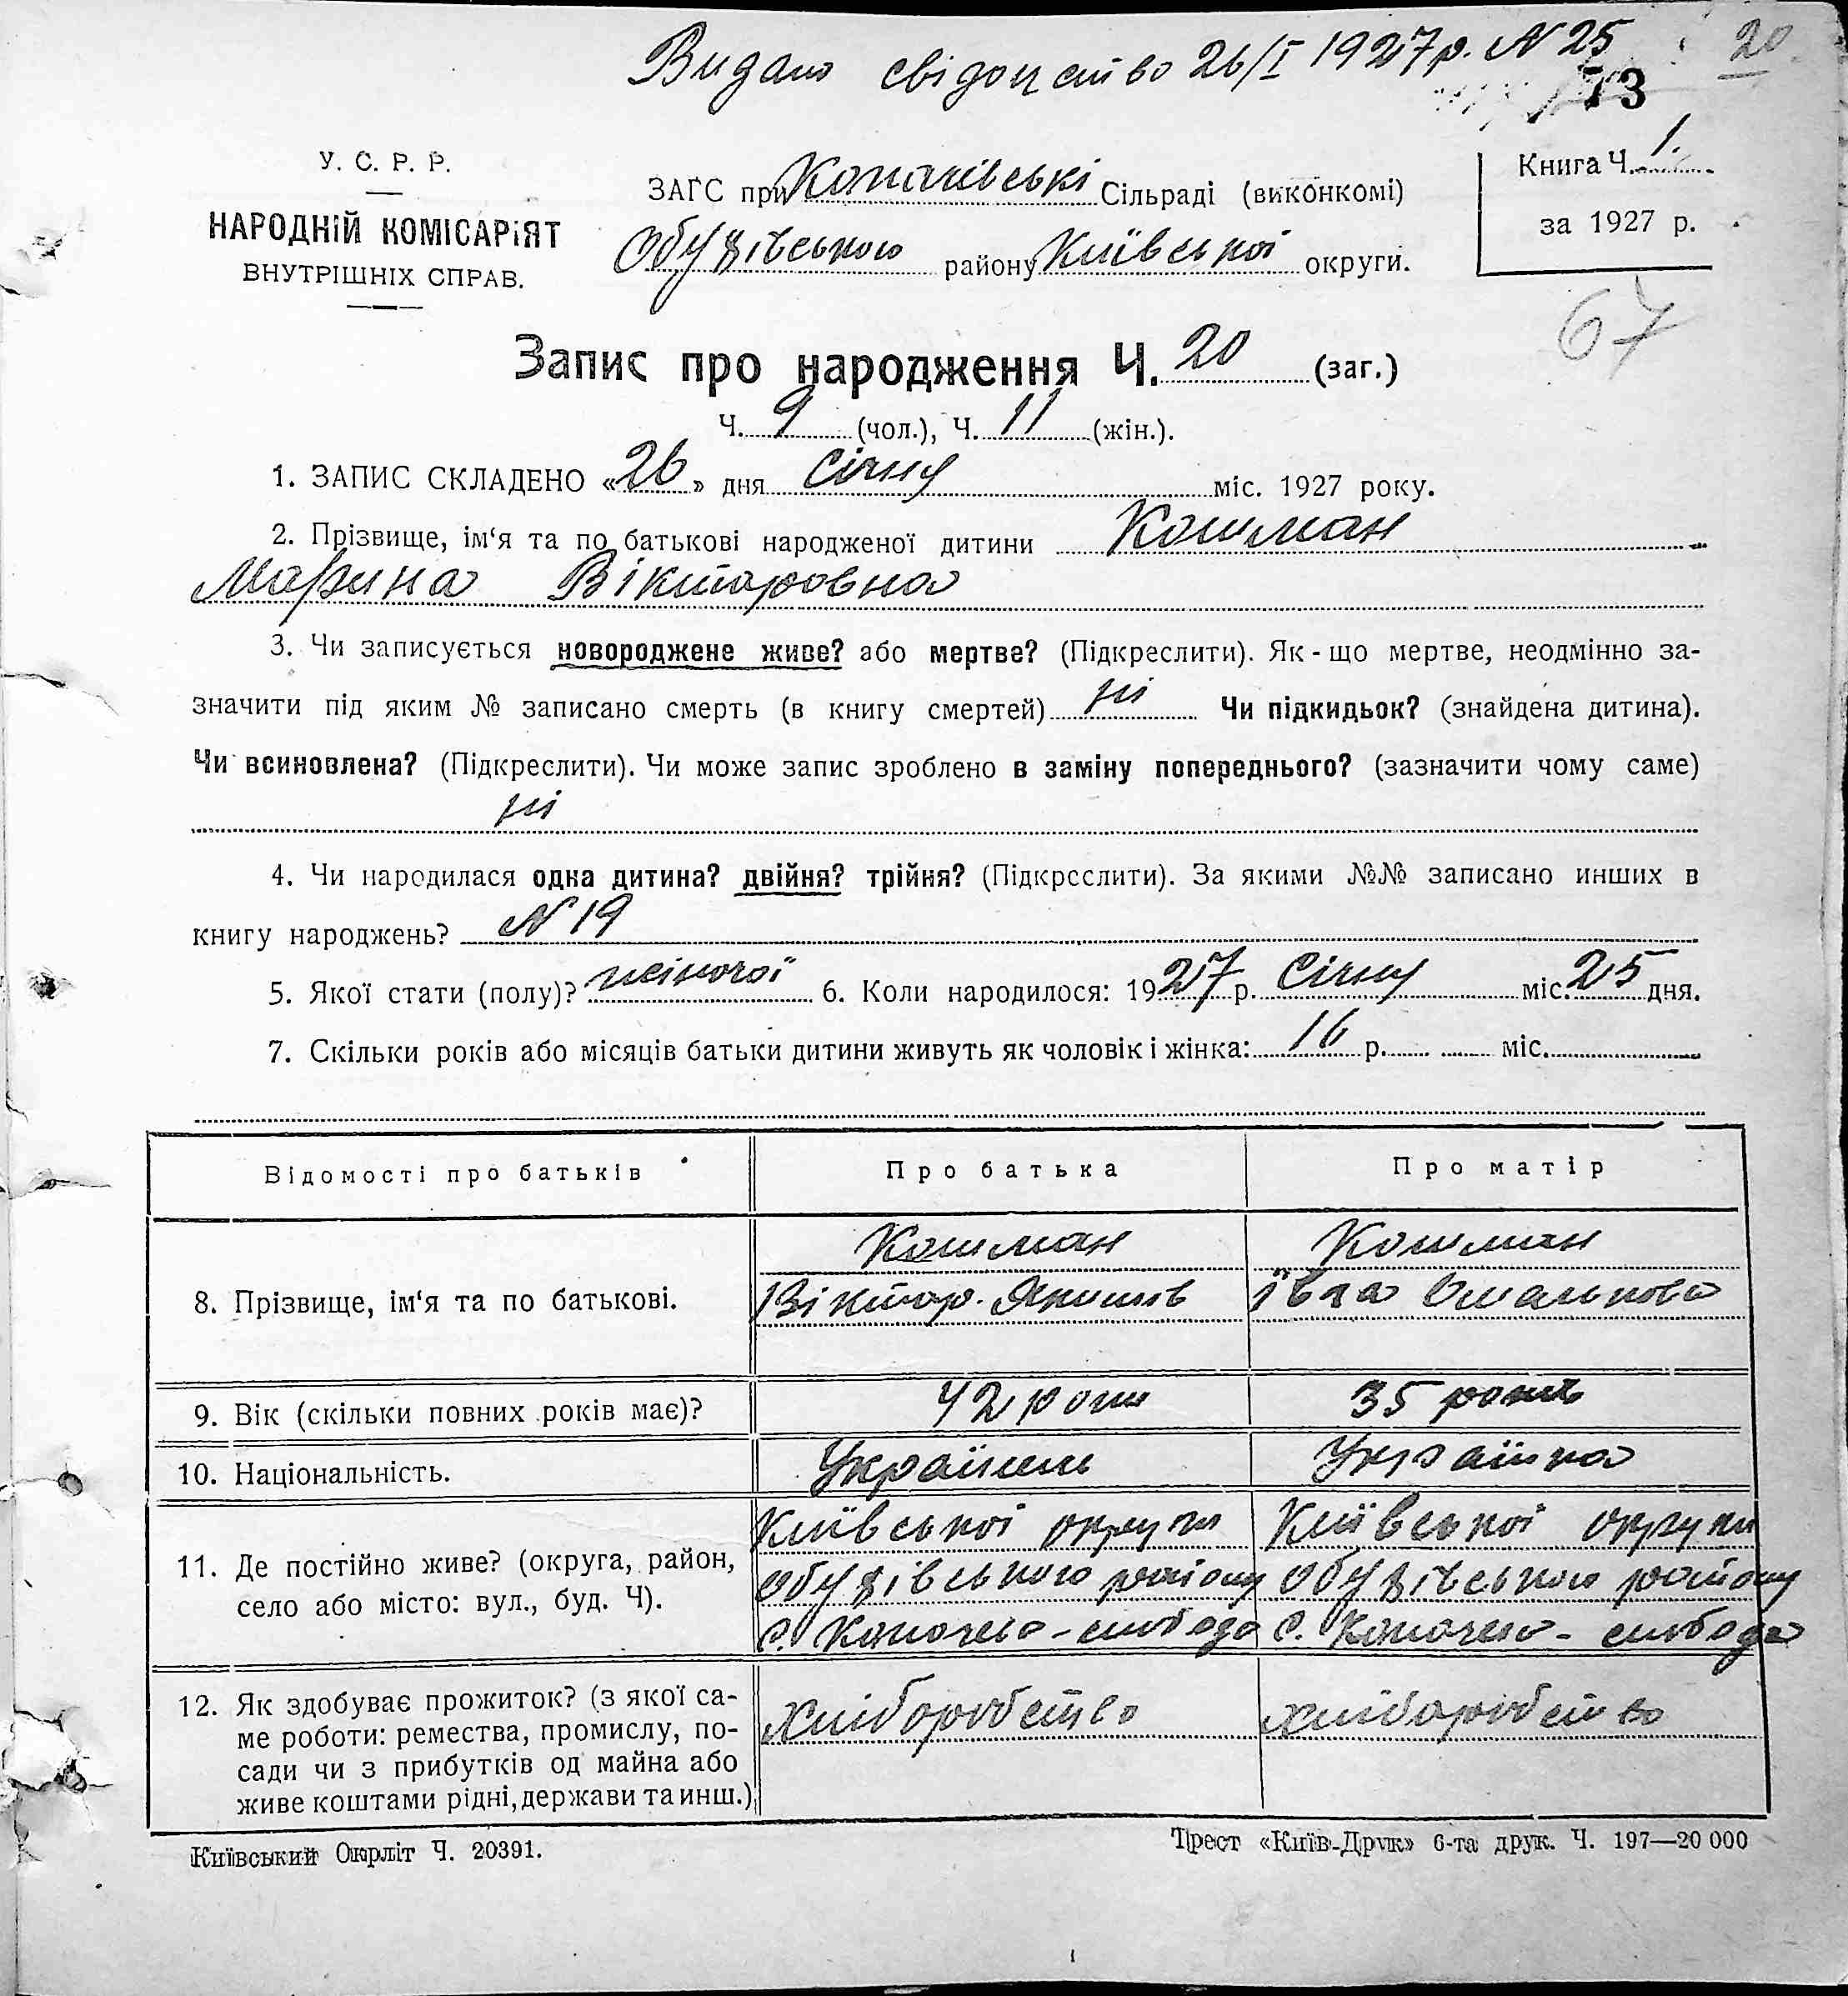 Видано свідоцтво 26/I 1927 р. N 25
20
73
У. С. Р. Р.
НАРОДНІЙ КОМІСАРІЯТ
ВНУТРІШНІХ СПРАВ.
ЗАГС при Копачівські Сільраді (виконкомі)
Обухівського району Київської округи.
Книга Ч. 1.
за 1927 р.
67
Запис про народження Ч. 20 (заг.)
Ч. 9 (чол.), Ч. 11 (жін.).
1. ЗАПИС СКЛАДЕНО «26» дня Січня міс. 1927 року.
2. Прізвище, ім‘я та по батькові народженої дитини Кошман
Марина Вікторовна
3. Чи записується новороджене живе? або мертве? (Підкреслити). Як-що мертве, неодмінно за-
значити під яким № записано смерть (в книгу смертей) ні Чи підкидьок? (знайдена дитина).
Чи всиновлена? (Підкреслити). Чи може запис зроблено в заміну попереднього? (зазначити чому саме)
ні
4. Чи народилася одна дитина? двійня? трійня? (Підкреслити). За якими №№ записано инших в
книгу народжень? N 19
5. Якої стати (полу)? жіночої 6. Коли народилося: 1927 р. Січня міс. 25 дня.
7. Скільки років або місяців батьки дитини живуть як чоловік і жінка: 16 р. міс.
Відомості про батьків Про батька Про матір
8. Прізвище, ім‘я та по батькові.
Кошман
Віктор Якимів
Кошман
Івга Омелькова
9. Вік (скільки повних років має)? 42 роки 35 років
10. Національність. Українець Українка
11. Де постійно живе? (округа, район,
село або місто: вул., буд. Ч).
Київської округи
Обухівського району
с. Копачево-слобода
Київської округи
Обухівського району
с. Копачево-слобода
12. Як здобуває прожиток? (з якої са-
ме роботи: ремества, промислу, по-
сади чи з прибутків од майна або
живе коштами рідні, держави та инш.)
хліборобство
хліборобство
Київський Окрліт Ч. 20391.
Трест «Київ-Друк» 6-та друк. Ч. 197—20 000